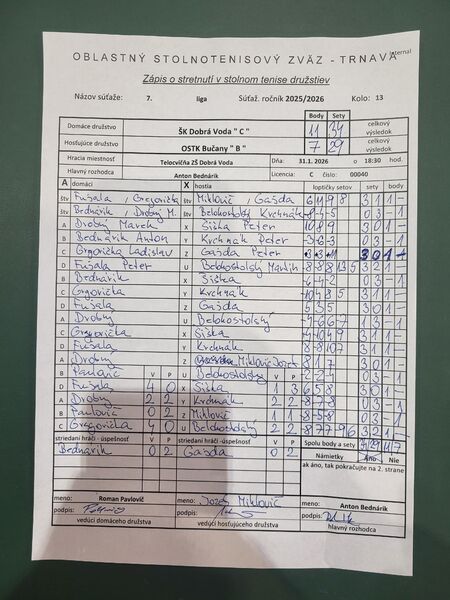 Internal
OBLASTNÝ STOLNOTENISOVÝ ZVÄZ - TRNAVA
Zápis o stretnutí v stolnom tenise družstiev
Názov súťaže: 7. liga Súťaž. ročník 2025/2026 Kolo: 13
Body Sety
Domáce družstvo ŠK Dobrá Voda " C " 11 34 celkový výsledok
Hosťujúce družstvo OSTK Bučany " B " 7 29 celkový výsledok
Hracia miestnosť Telocvičňa ZŠ Dobrá Voda Dňa: 31.1. 2026 o 18:30 hod.
Hlavný rozhodca Anton Bednárik Licencia: C číslo: 00040
A domáci X hostia loptičky setov sety body
štv Fušala, Grgorička štv Miklovič, Gašda 3 1 1 -
štv Bednárik, Drobný M. štv Belokostolský Krchnák 0 3 - 1
A Drobný Marek X Šiška Peter 3 0 1 -
B Bednárik Anton Y Krchnák Peter -3 -6 -3 0 3 - 1
C Grgorička Ladislav Z Gašda Peter 3 0 1
D Fušala Peter U Belokostolský Martin 3 2 1 -
B Bednárik X Šiška 0 3 - 1
C Grgorička Y Krchnák 3 1 1 -
D Fušala Z Gašda 5 3 5 3 0 1 -
A Drobný U Belokostolský 1 3 - 1
C Grgorička X Šiška 3 1 1 -
D Fušala Y Krchnák 3 1 1 -
A Drobný Z Miklovič Jozef 8 1 7 3 0 1 -
B Pavlovič V P U Belokostolský V P 0 3 - 1
D Fušala 4 0 X Šiška 1 3 6 5 8 3 0 1 -
A Drobný 2 2 Y Krchnák 2 2 0 3 - 1
B Pavlovič 0 2 Z Miklovič 1 1 0 3 - 1
C Grgorička 4 0 U Belokostolský 2 2 3 2 1 -
striedaní hráči - úspešnosť V P striedaní hráči - úspešnosť V P Spolu body a sety 34 29 11 7
Bednárik 0 2 Gašda 0 2 Námietky Áno - Nie
ak áno, tak pokračujte na 2. strane
meno: Roman Pavlovič meno: Jozef Miklovič meno: Anton Bednárik
podpis: podpis: podpis:
vedúci domáceho družstva vedúci hosťujúceho družstva hlavný rozhodca